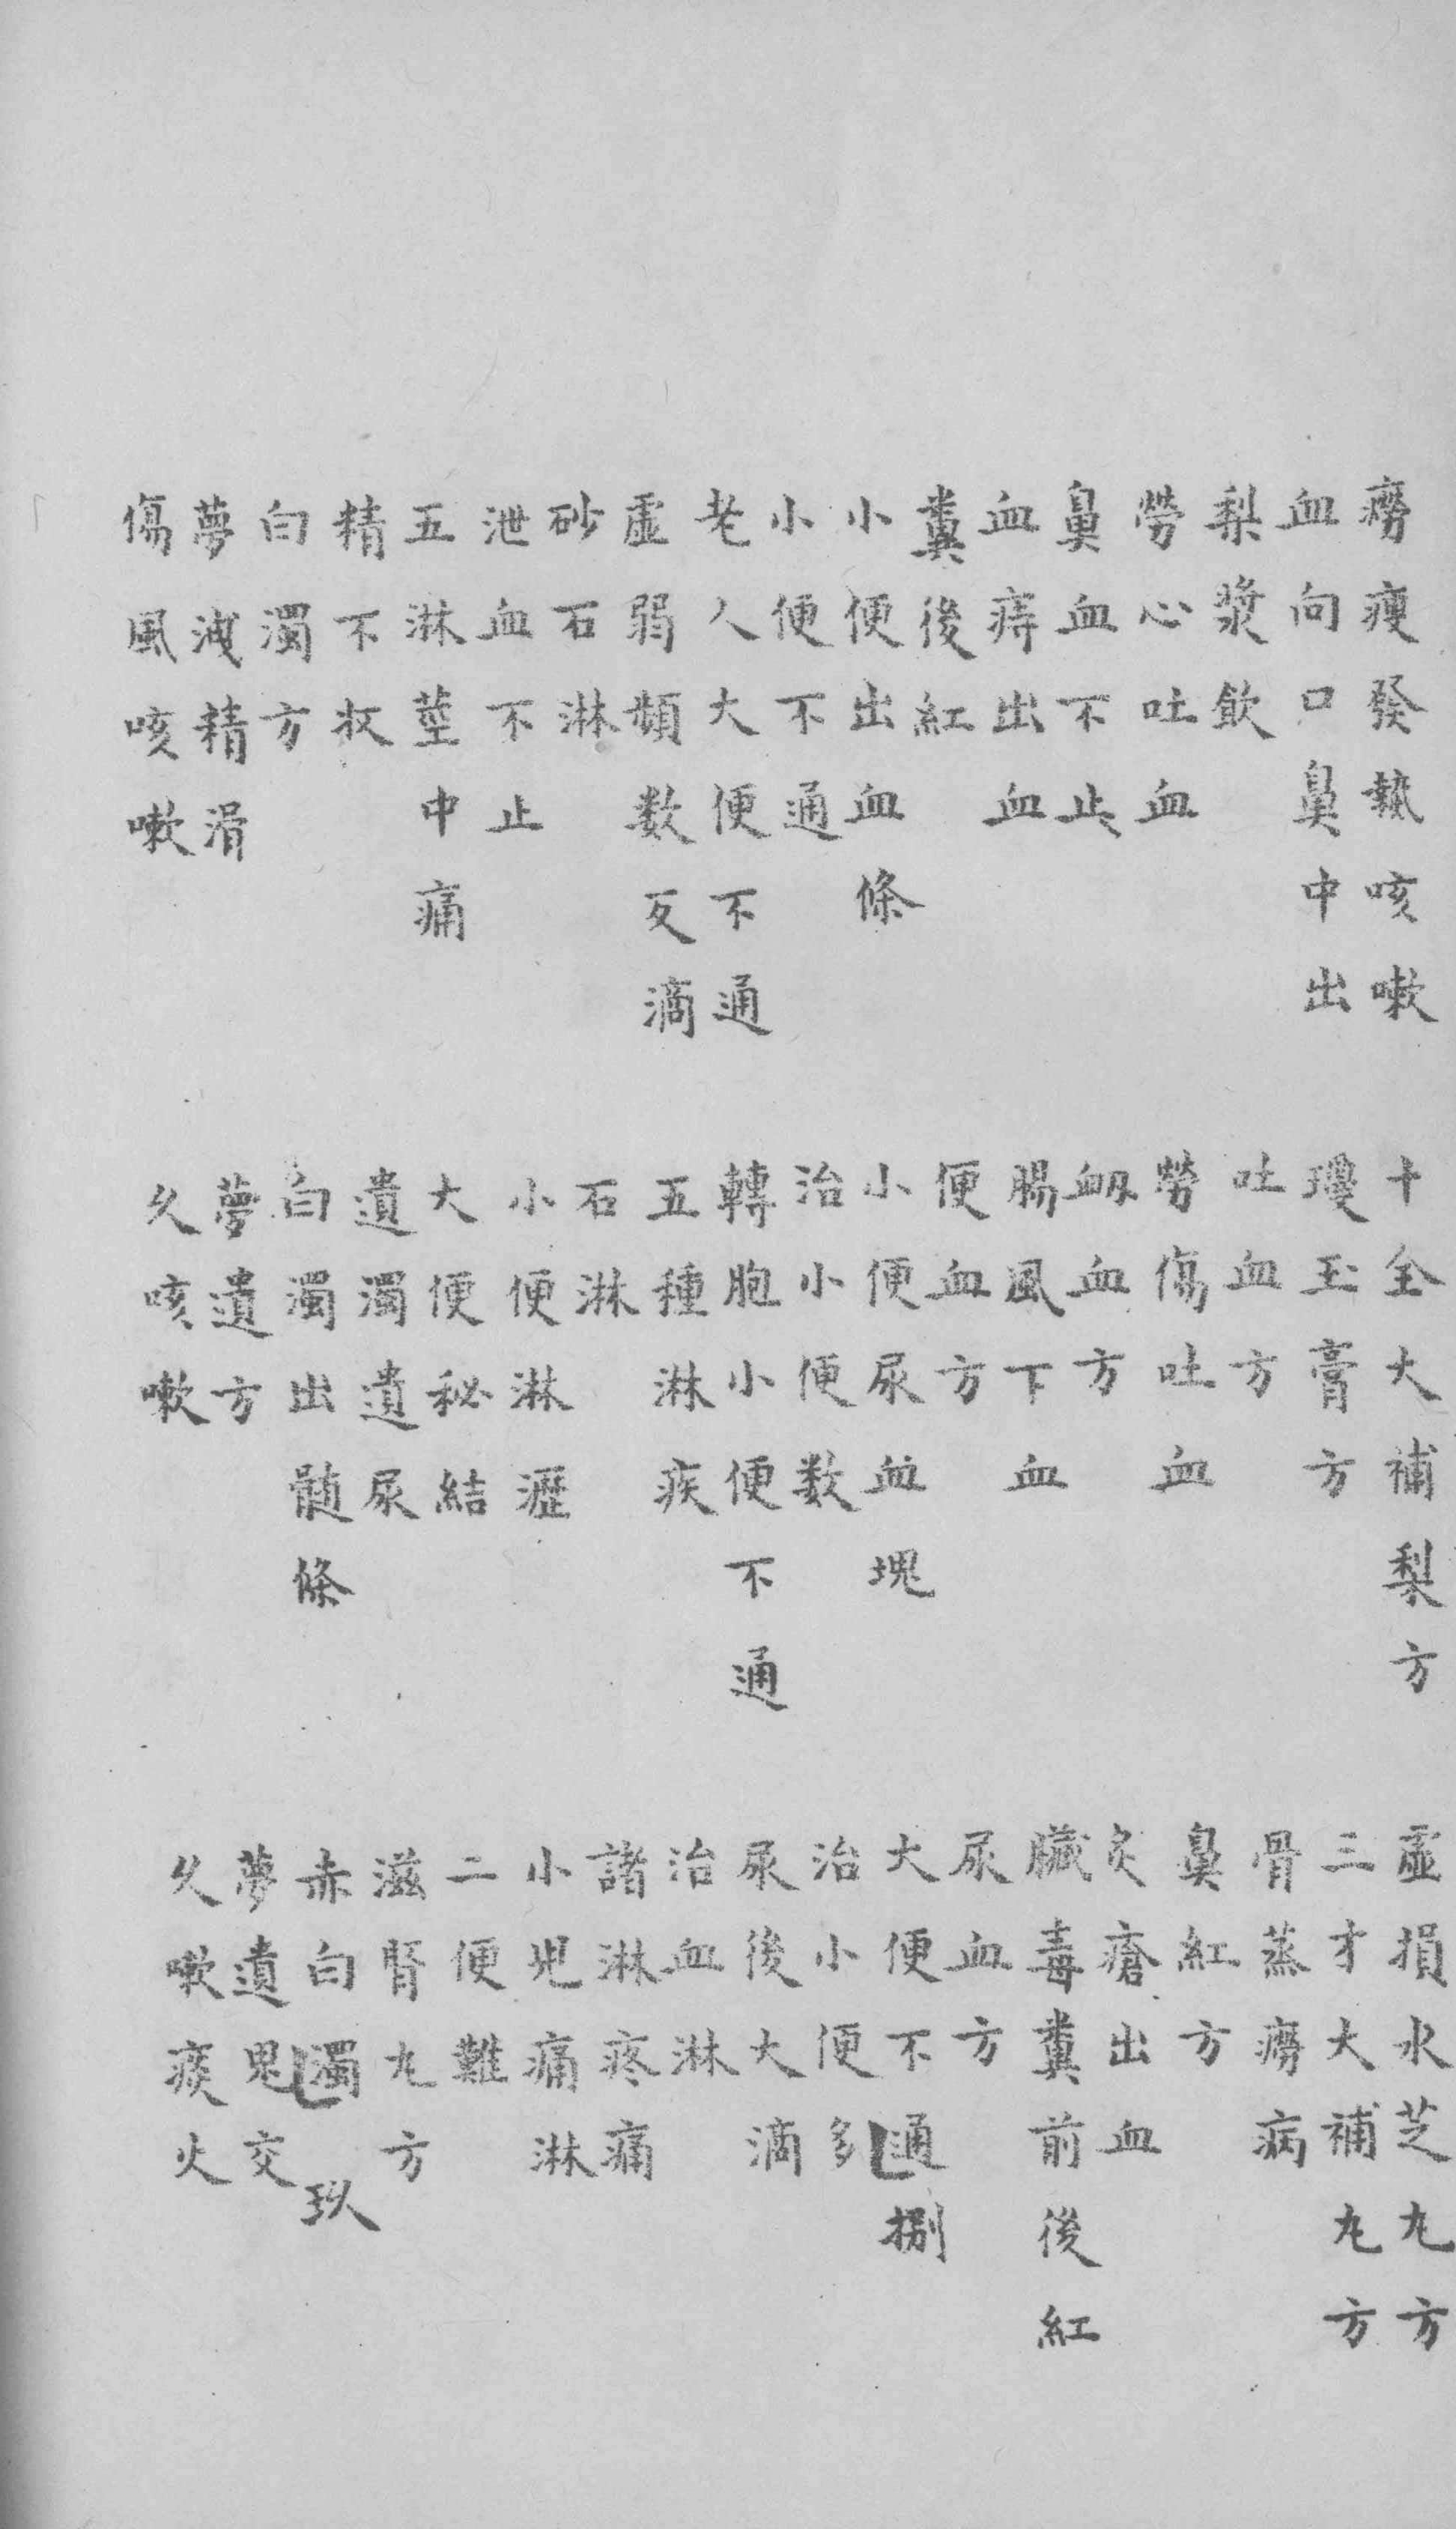 癆瘦發熱咳嗽 十全大補梨方 虛損水芝丸方
血向口鼻中出 瓊玉膏方 三才大補丸方
梨漿飲 吐血方 骨蒸癆病
勞心吐血 勞傷吐血 鼻紅方
鼻血不止 衂血方 灸瘡出血
血痔出血 腸風下血 臟毒糞前後紅
糞後紅 便血方 尿血方
小便出血條 小便尿血塊 大便不通 捌
小便不通 治小便数 治小便多
老人大便不通 轉胞小便不通 尿後大滴
虛弱頻数反滴 五種淋疾 治血淋
砂石淋 石淋 諸淋疼痛
泄血不止 小便淋瀝 小兒痛淋
五淋莖中痛 大便秘結 二便難
精不收 遺濁遺尿 滋腎丸方
白濁方 白濁出髄條 赤白濁 玖
夢洩精滑 夢遺方 夢遺鬼交
傷風咳嗽 久咳嗽 久嗽痰火